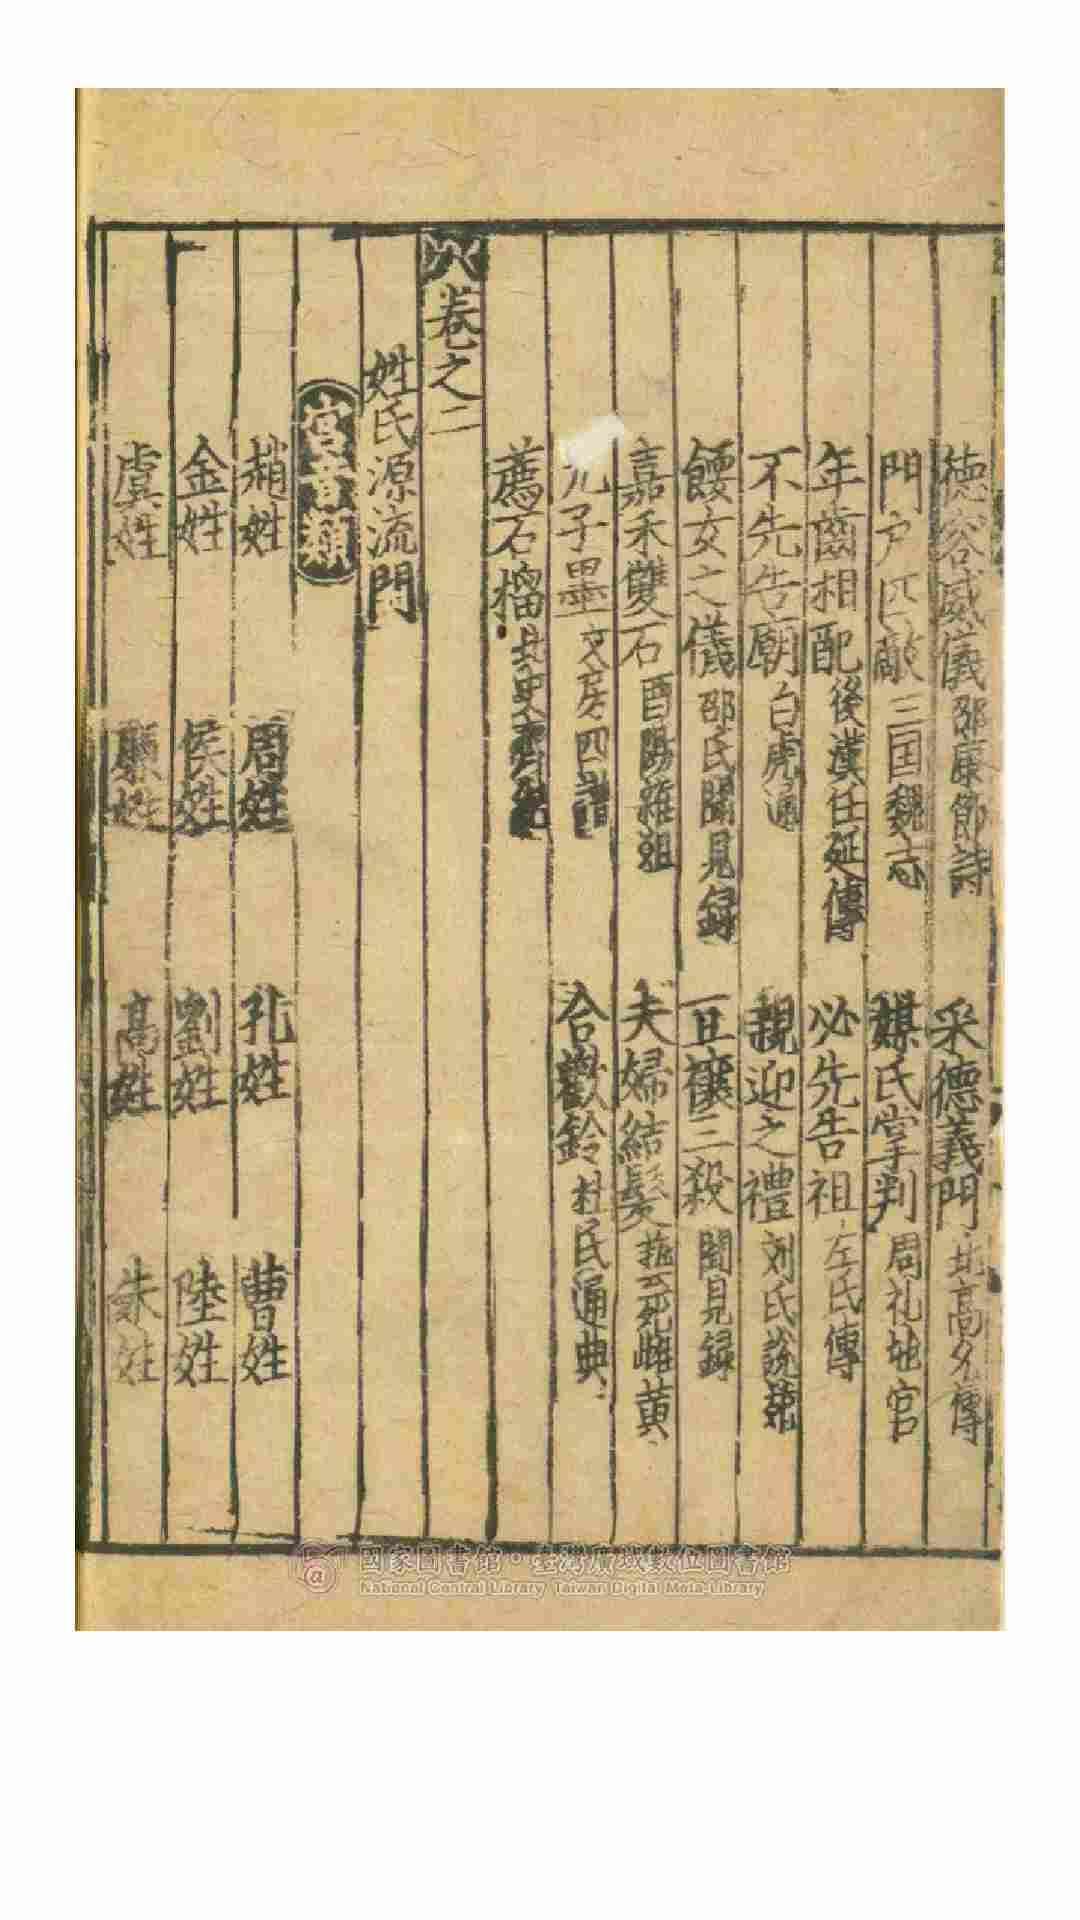 德容威儀 邵康節詩 采德義門 北高允傳
門戶匹敵 三国魏志 媒氏掌判 周礼地官
年齒相配 後漢任延傳 必先告祖 左氏傳
不先告廟 白虎通 親迎之禮 刘氏說苑
餪女之儀 邵氏聞見録 且禳三殺 聞見録
嘉禾雙石 酉陽雜俎 夫婦結髮
九子墨 文房四譜 合歡鈴 杜氏通典
薦石榴 北史
卷之二
姓氏源流門
宮音類
趙姓 周姓 孔姓 曹姓
金姓 侯姓 劉姓 陸姓
虞姓 姓 高姓 朱姓
國家圖書館・臺灣廣域數位圖書館
National Central Library Taiwan Digital Meta-Library